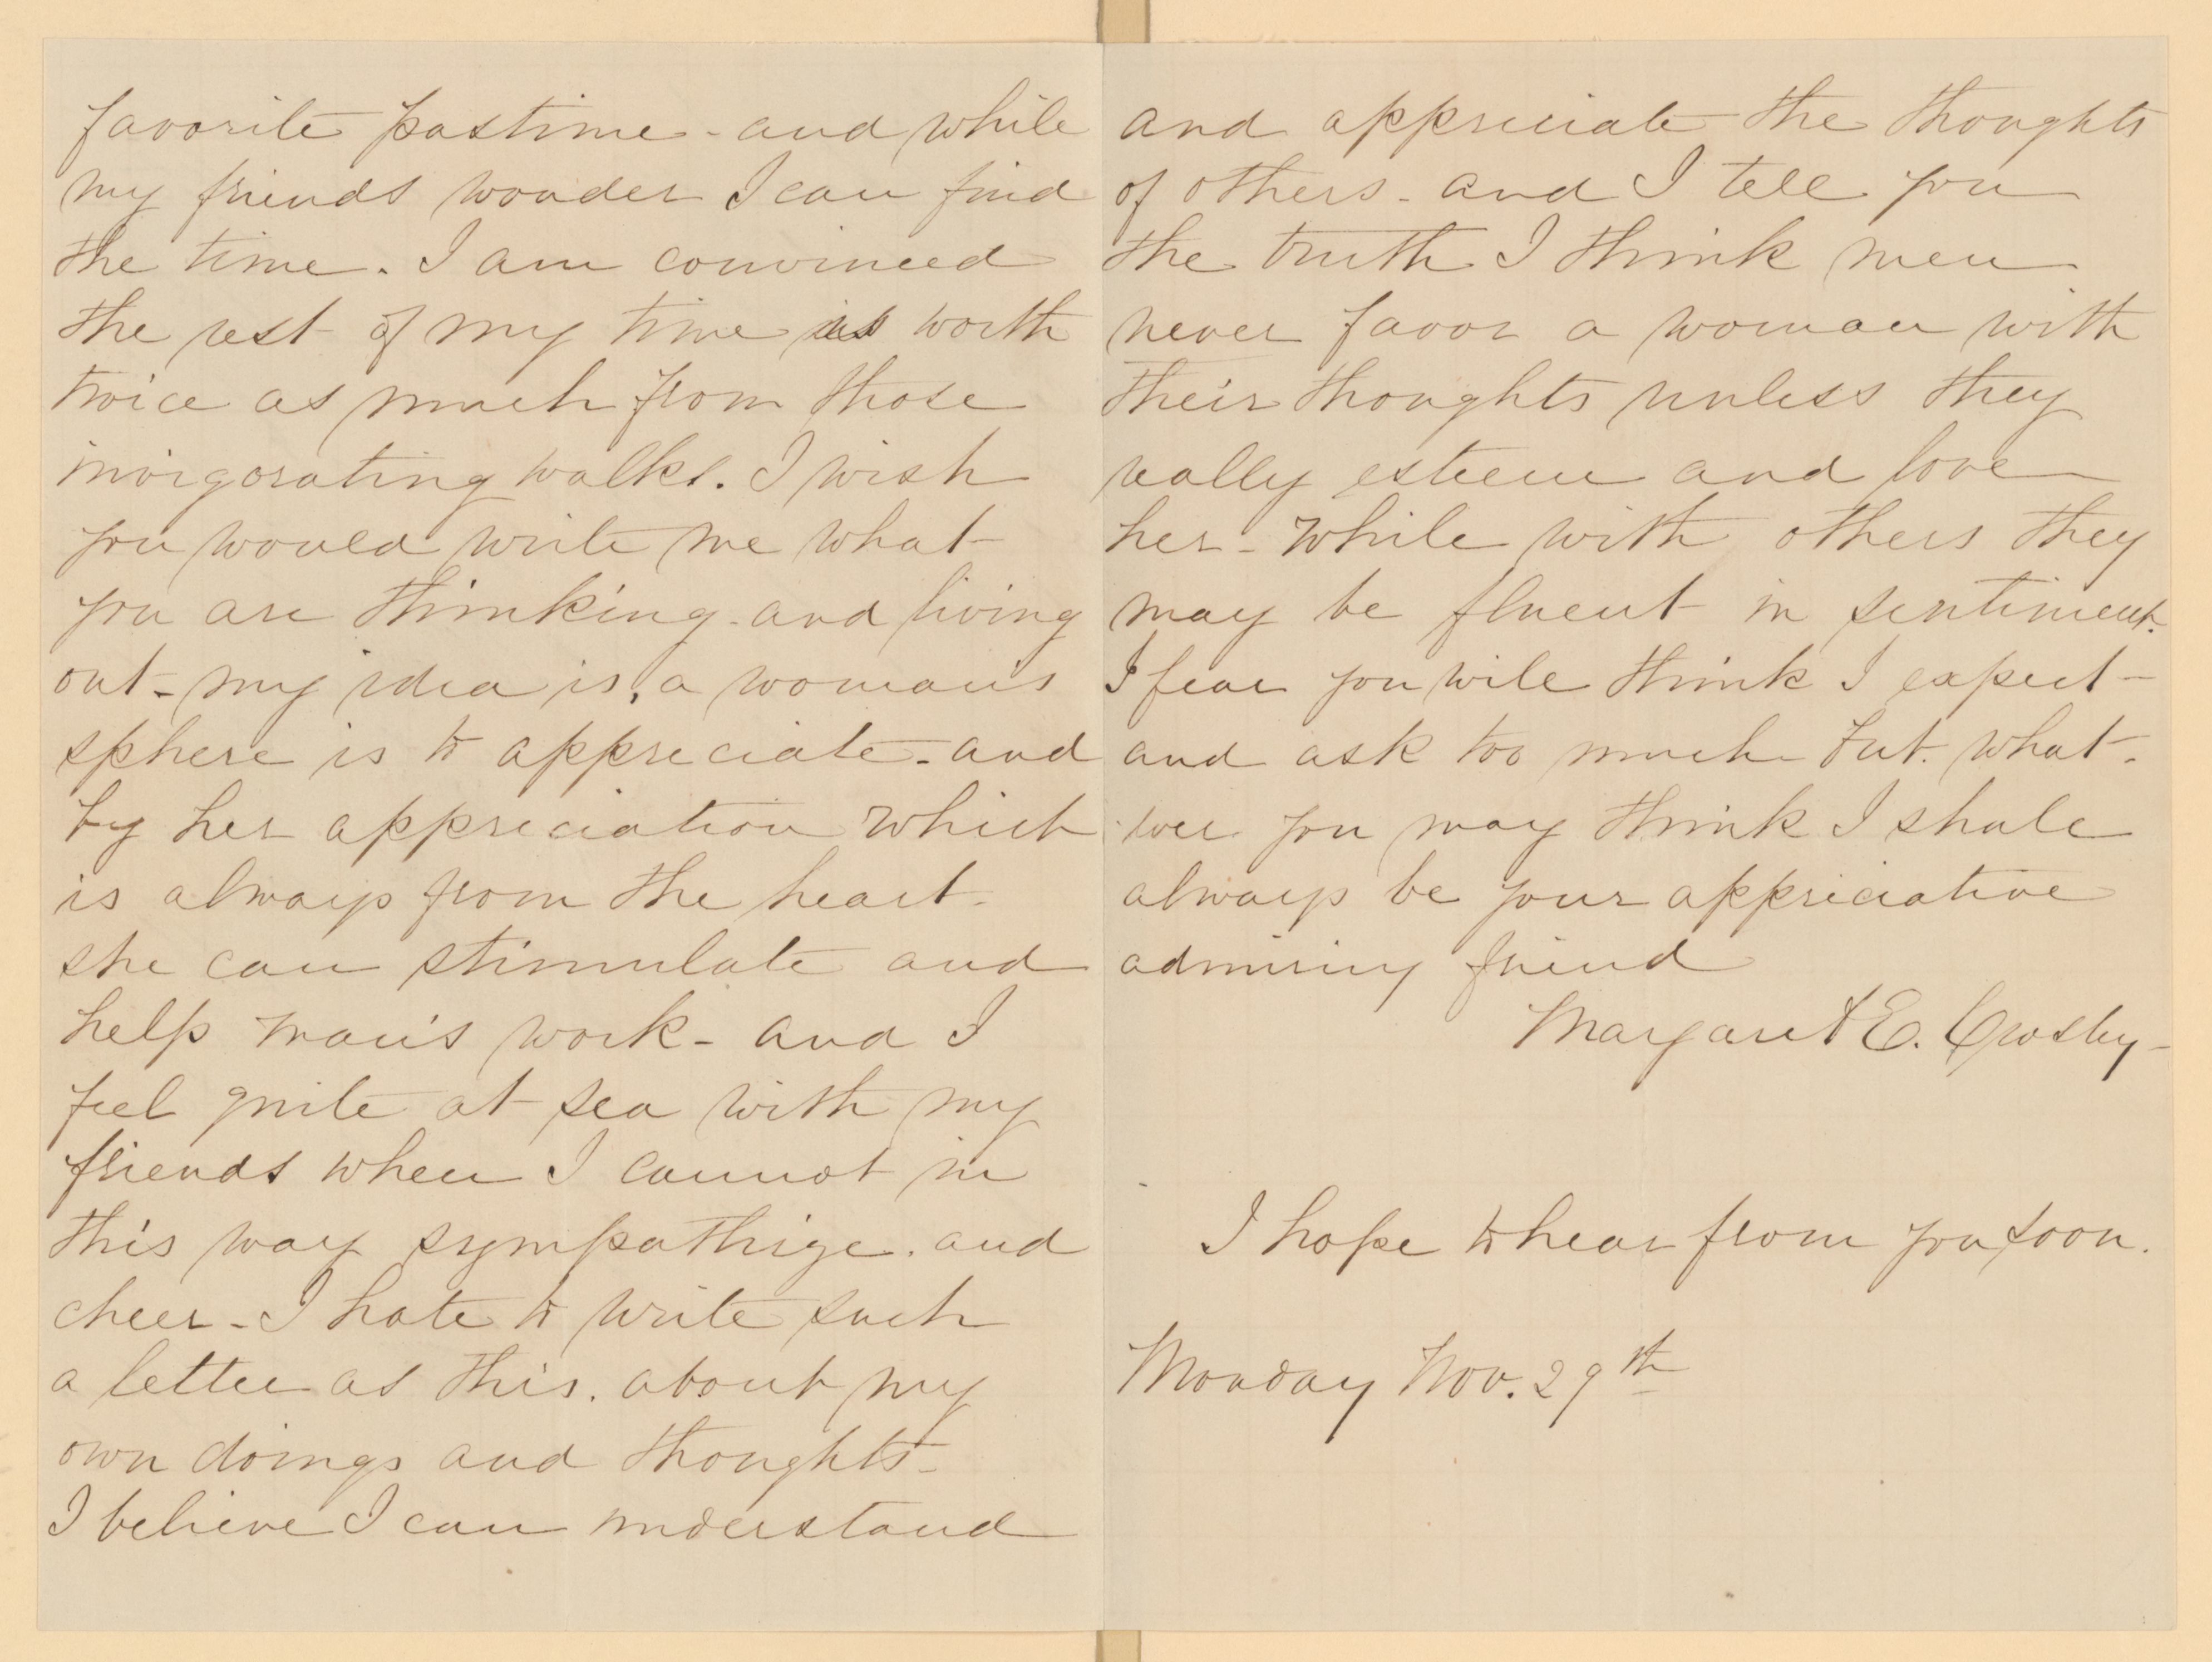 favorite pastime - and while
my friends wonder I can find
the time. I am convinced
the rest of my time is worth
twice as much from those
invigorating walks. I wish
you would write me what
you are thinking - and living
out - my idea is, a woman's
sphere is to appreciate - and
by her appreciation which
is always from the heart -
she can stimulate and
help man's work - and I
feel quite at sea with my
friends when I cannot in
this way sympathize. and
cheer - I hate to write such
a letter as this. about my
own doings and thoughts -
I believe I can understand
and appreciate the thoughts
of others - and I tell you
the truth I think men
never favor a woman with
their thoughts unless they
really esteem and love
her - while with others they
may be fluent in sentiment.
I fear you will think I expect -
and ask too much but. what-
ever you may think I shall
always be your appreciative
admiring friend
Margaret E. Crosby -
I hope to hear from you soon.
Monday Nov. 29th